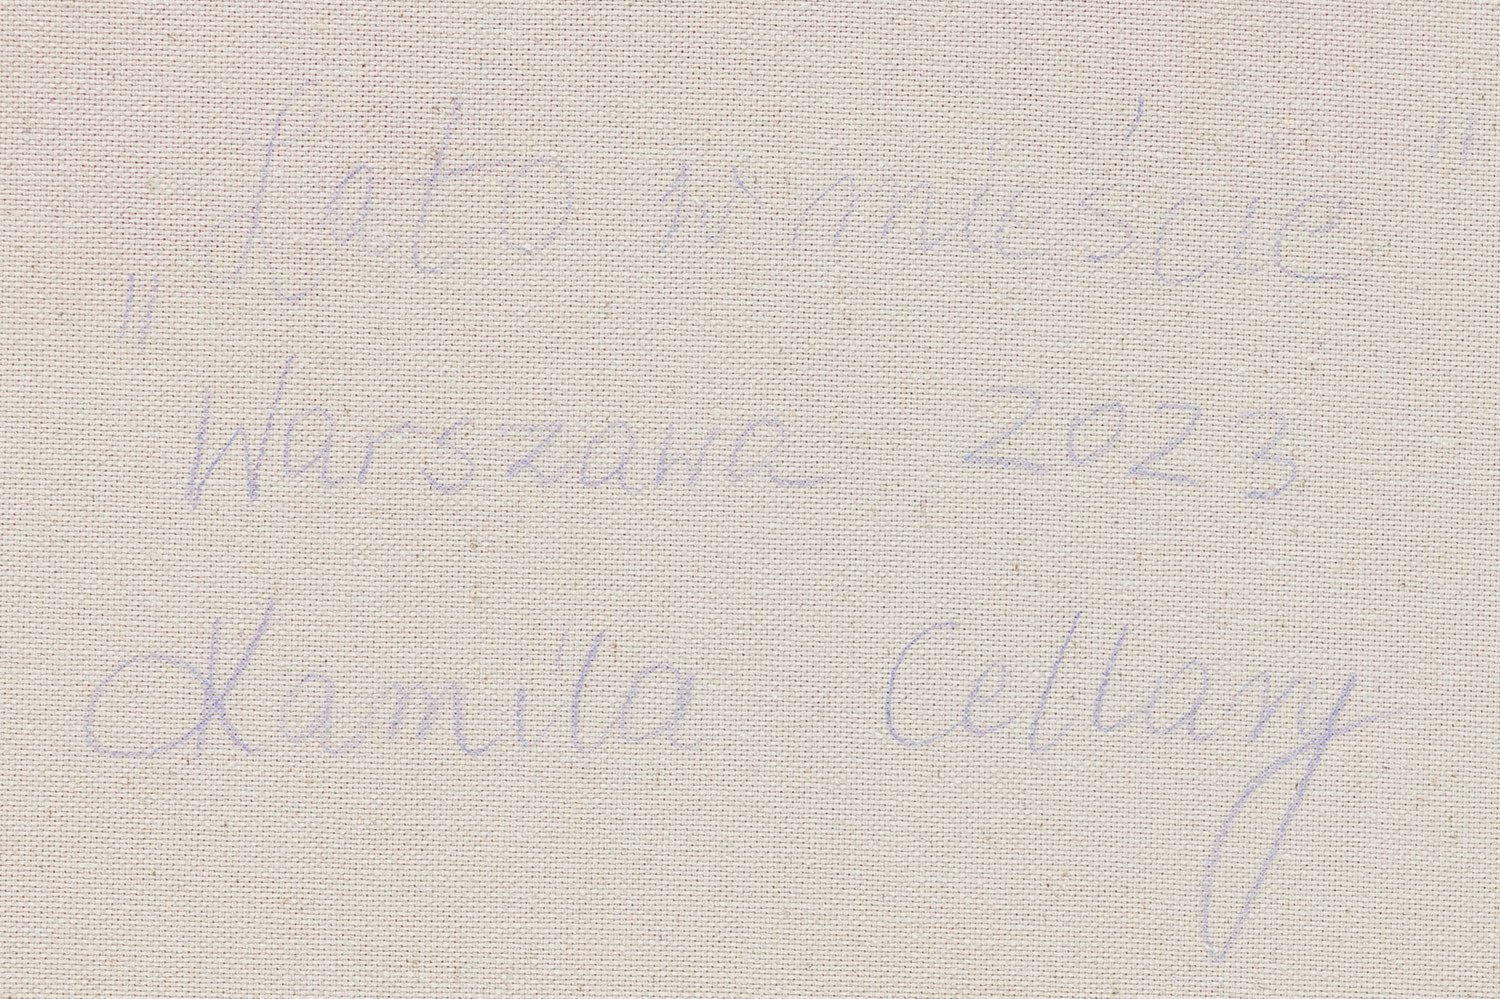 „Lato w mieście"
Warszawa 2023
Kamila Cellary